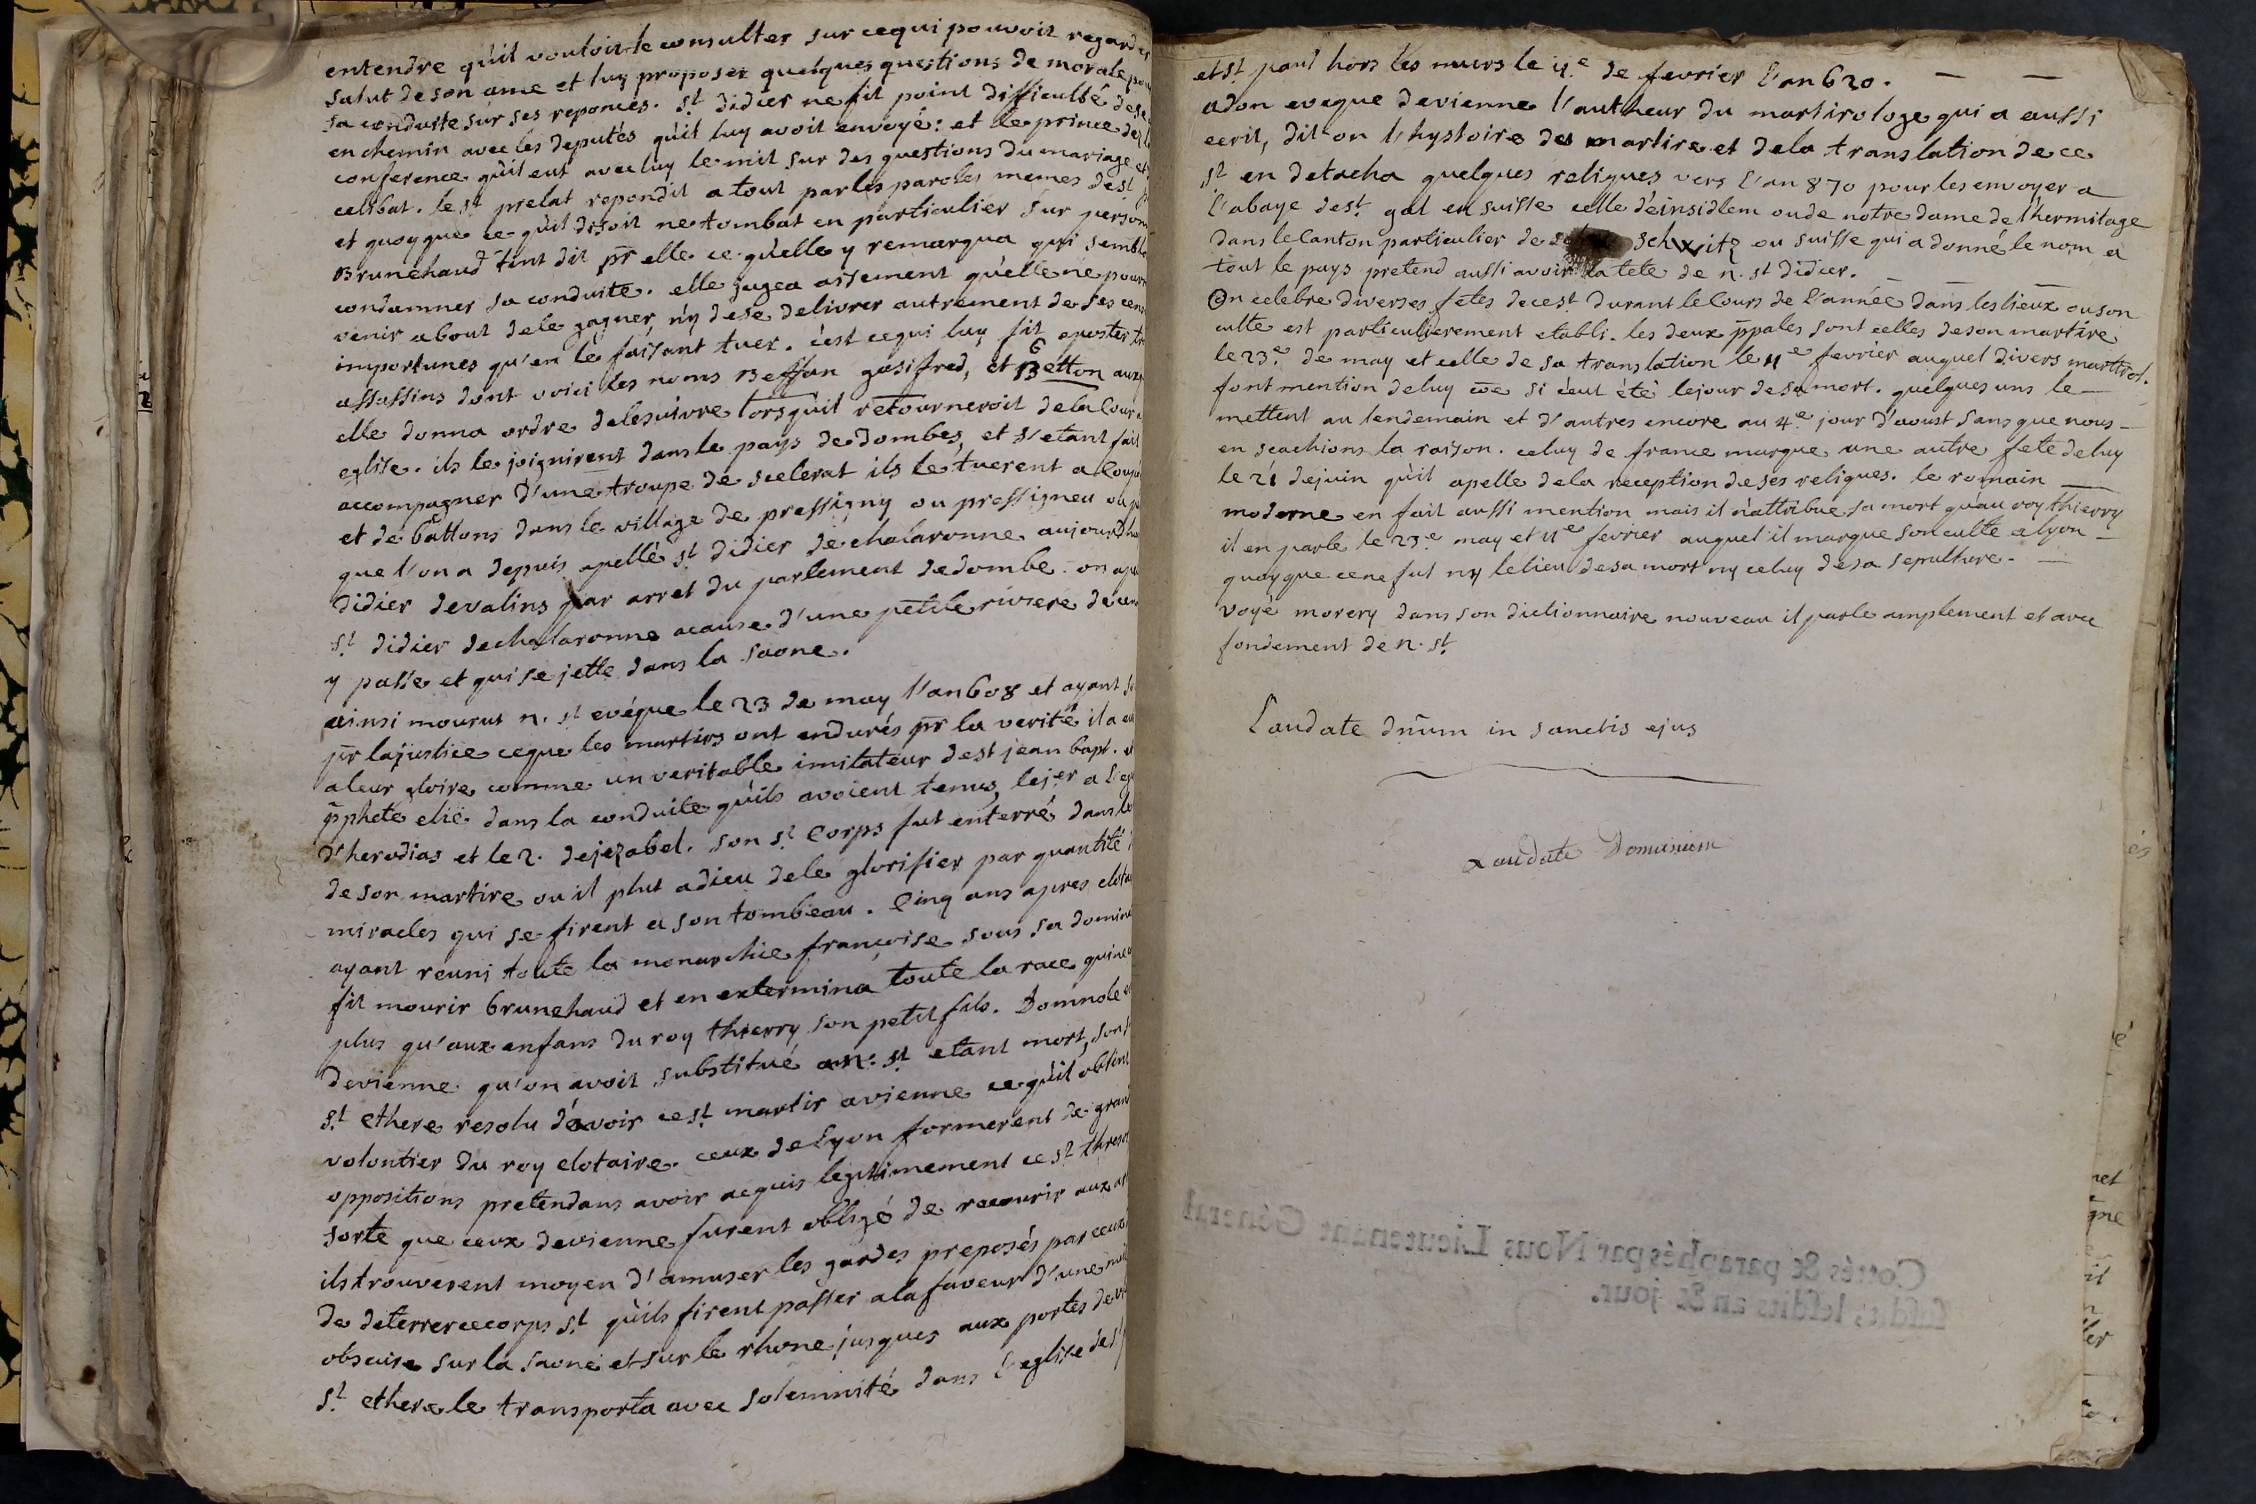 entendre qu'il vouloit le consulter sur ce qui pouvoit regarder
salut de son ame et luy proposer quelques questions de morale pou
sa conduite sur ses reponces. st didier ne fit point difficulté de se
en chemin avec les deputés qu'il luy avoit envoyé: et le prince
conference qu'il eut avec luy le mit sur des questions du mariage et
celibat. le st prelat repondit a tout par les paroles memes de st
et quoyque ce qu'il disoit ne tombat en particulier sur person
Brunehaud tint dit pr elle ce qu'elle y remarqua qui sembl
condamner sa conduite. elle jugea aisement qu'elle ne pour
venir a bout de le gagner, n'y de se delivrer autrement de ses cen
importunes qu'en le faisant tuer. c'est ce qui luy fit aposter
assassins dont voici les noms Beffan gasifred, et Betton aux
elle donna ordre de le suivre lorsqu'il retourneroit de la Cour a
eglise. ils le joignirent dans le pays de dombes, et s'etant fait
accompagner d'une troupe de scelerat ils le tuerent a Coup
et de battons dans le village de pressigny ou pressigneu ou
que l'on a depuis apellé st didier de chalaronne aujourdhu
didier de valins par arret du parlement de dombe. on ape
st didier de chalaronne a cause d'une petite riviere de ce
y passe et qui se jette dans la saone.
ainsi mourut n. st evéque le 23 de may l'an 608 et ayant
pr la justice ce que les martirs ont endurés pr la verité il a eu
a leur gloire comme un veritable imitateur de st jean bapt. et
pphete elie dans la conduite qu'ils avoient tenus, le j.er a l'eg
d'herodias et le 2. de jezabel. son st Corps fut enterré dans le
de son martire ou il plut a dieu de le glorifier par quantité
miracles qui se firent a son tombeau. Cinq ans apres clota
ayant reuni toute la monarchie françoise sous sa domina
fit mourir brunehaud et en extermina toute la race
plus qu'aux enfans du roy thierry son petit fils. Domnole
de vienne qu'on avoit substitué a n. st etant mort, son
st ethere resolu d'avoir ce st martir a vienne ce qu'il obtint
volontier du roy clotaire. ceux de Lyon formerent de gran
oppositions pretendans avoir acquis legitimement ce st thresor
sorte que ceux de vienne furent obligé de recourir aux
ils trouverent moyen d'amuser les gardes preposés par ceux
de deterrer ce corps st qu'ils firent passer a la faveur d'une nui
obscure sur la saone et sur le rhone jusques aux portes de vi
st ethere le transporta avec solemnité dans l'eglise de st
et st paul hors les murs le 11e de fevrier l'an 620.
adon eveque de vienne l'autheur du martirologe qui a aussi
ecrit, dit on l'hystoire du martire et de la translation de ce
st en detacha quelques reliques vers l'an 870 pour les envoyer a
l'abaye de st gal en suisse celle d'einsidlem ou de notre dame de l'hermitage
dans le Canton particulier de schwitz ou suisse qui a donné le nom a
tout le pays pretend aussi avoir la tete de n. st didier.
On celebre diverses fetes de ce st durant le Cours de l'année dans les lieux ou son
culte est particulierement etabli. les deux ppales sont celles de son martire
le 23e de may et celle de sa translation le 11e fevrier auquel divers martirol.
font mention de luy coe si c'eut été le jour de sa mort. quelques uns le
mettent au lendemain et d'autres encore au 4e jour d'aoust sans que nous
en scachions la raison. celuy de france marque une autre fete de luy
le 21 de juin qu'il apelle de la reception de ses reliques. le romain
moderne en fait aussi mention mais il n'attribue sa mort qu'au roy thierry
il en parle le 23e may et 11e fevrier auquel il marque son culte a lyon
quoyque ce ne fut ny le lieu de sa mort ny celuy de sa sepulture.
voyé morery dans son dictionnaire nouveau il parle amplement et avec
fondement de n. st
Laudate dnum in sanctis ejus
Laudate Dominum
Cottés & paraphés par Nous Lieutenant Général
susdit, lesdits an & jour.